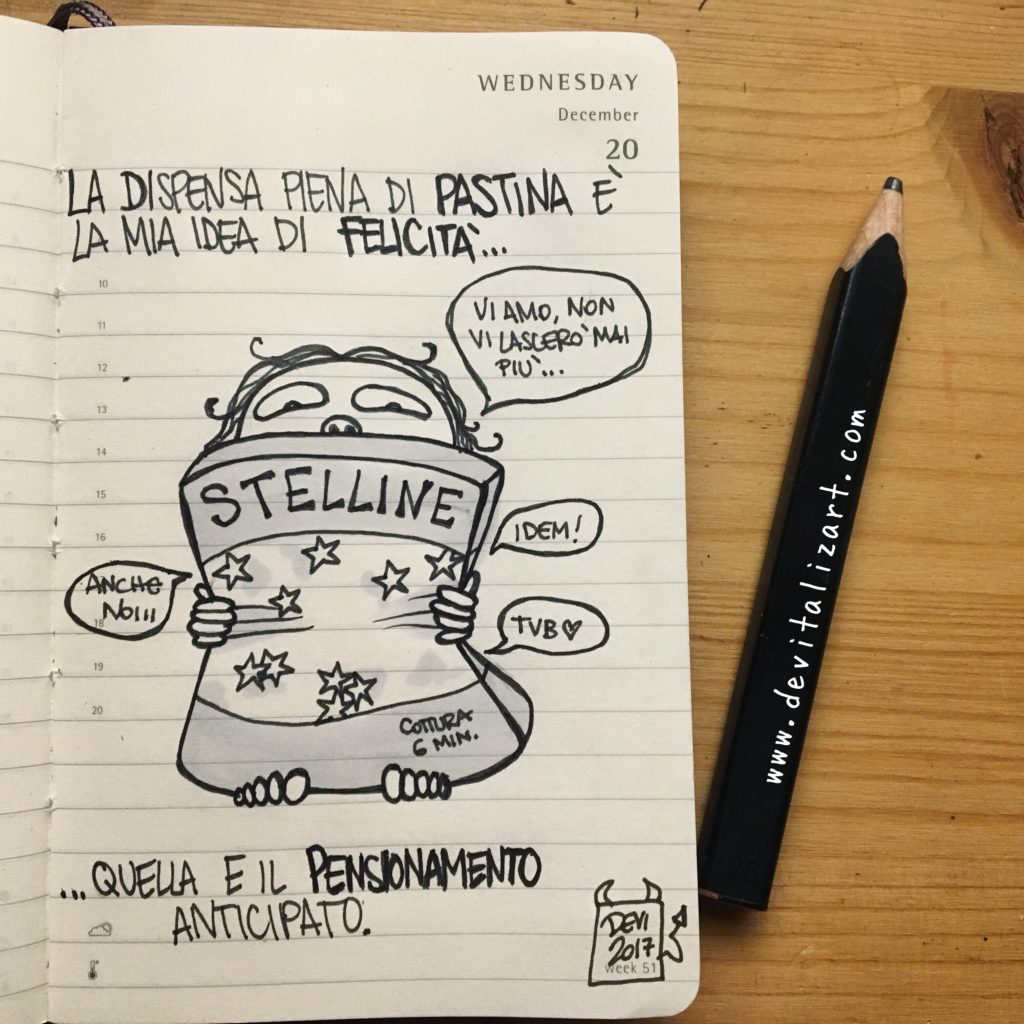 WEDNESDAY
December
20
LA DISPENSA PIENA DI PASTINA È
LA MIA IDEA DI FELICITÀ...
10
11
12
13
14
15
16
18
19
20
VI AMO, NON
VI LASCERÒ MAI
PIÙ...
STELLINE
IDEM!
ANCHE
NOI!!!
TVB
COTTURA
6 MIN.
...QUELLA E IL PENSIONAMENTO
ANTICIPATO.
DEVI
2017
week 51
www.devitalizart.com
2B